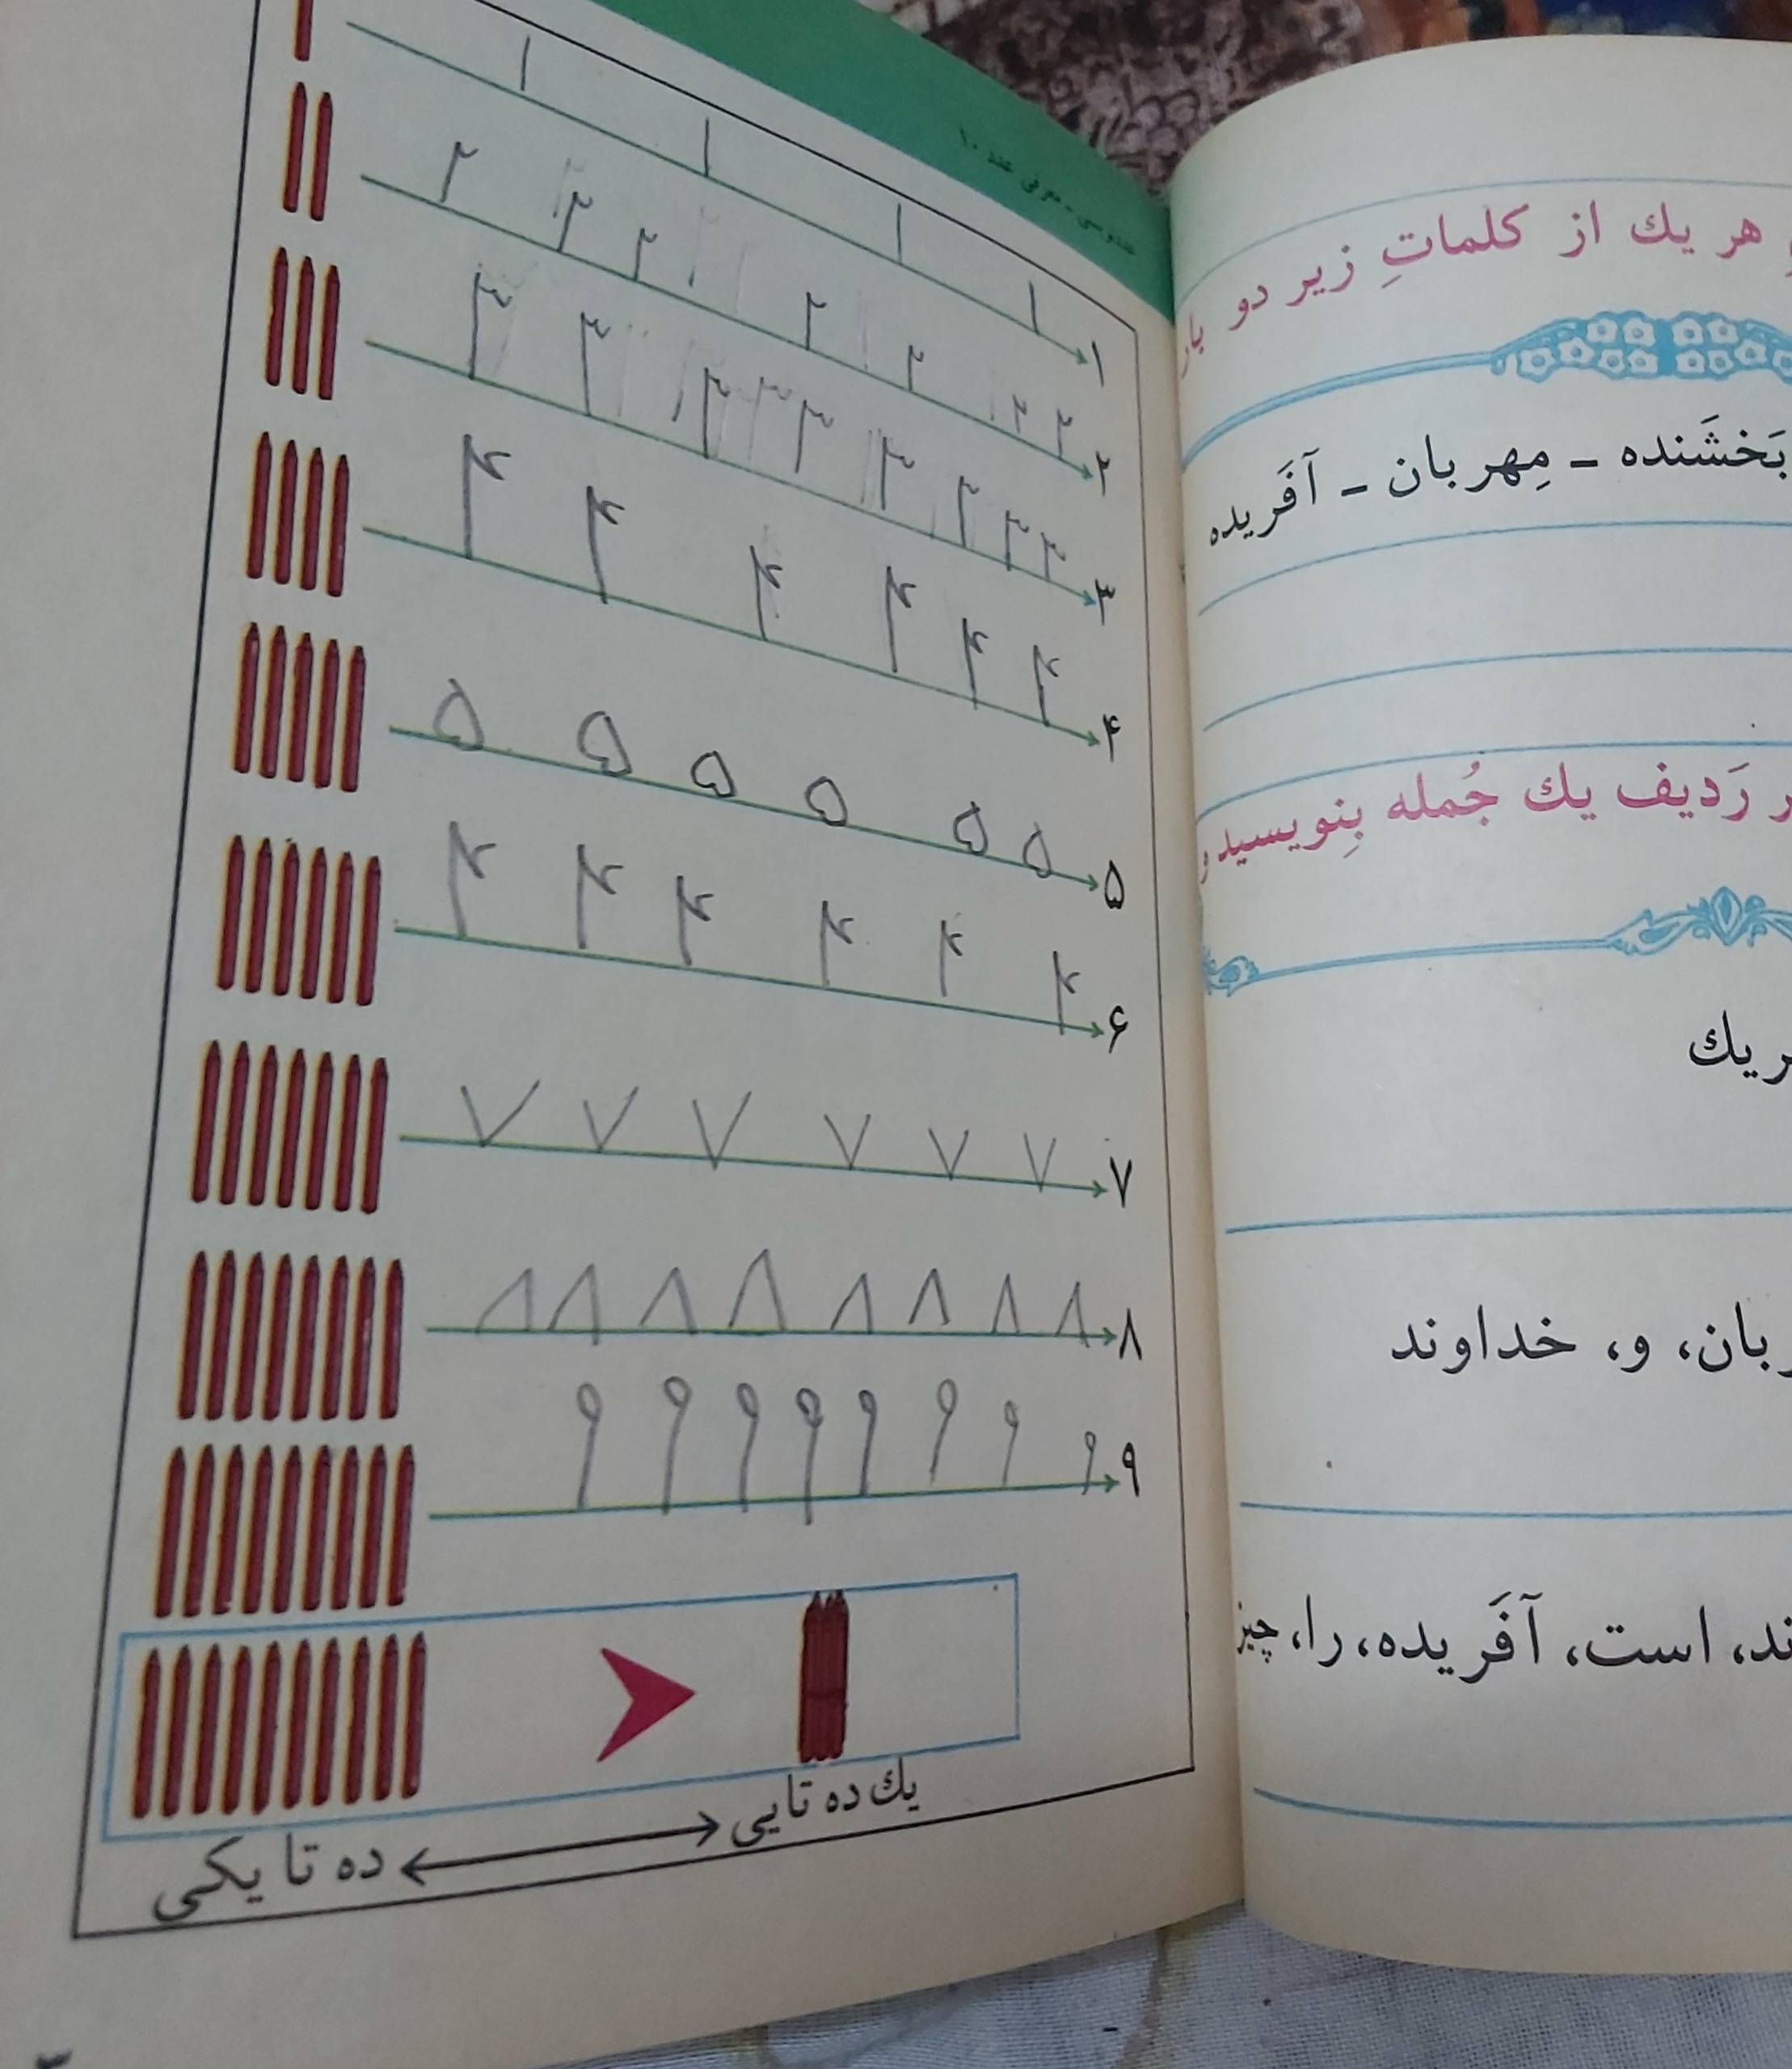 هر یك از کلماتِ زیر دو بار
بَخشَنده ـ مِهربان ـ آفَریده
رَدیف یك جُمله بِنویسید و
خداوند ،و ،
است، آفَریده، را، چیز
معرفی عدد ۱۰
۱ ۱ ۱ ۱ ۱
۲ ۲ ۲ ۲ ۲ ۲ ۲ ۲
۳ ۳ ۳ ۳ ۳ ۳ ۳ ۳ ۳
۴ ۴ ۴ ۴ ۴ ۴ ۴
۵ ۵ ۵ ۵ ۵ ۵ ۵
۶ ۴ ۴ ۴ ۴ ۴ ۴
۷ ۷ ۷ ۷ ۷ ۷ ۷
۸ ۸ ۸ ۸ ۸ ۸ ۸ ۸ ۸
۹ ۹ ۹ ۹ ۹ ۹ ۹ ۹ ۹
یك ده تایی
ده تا یکی